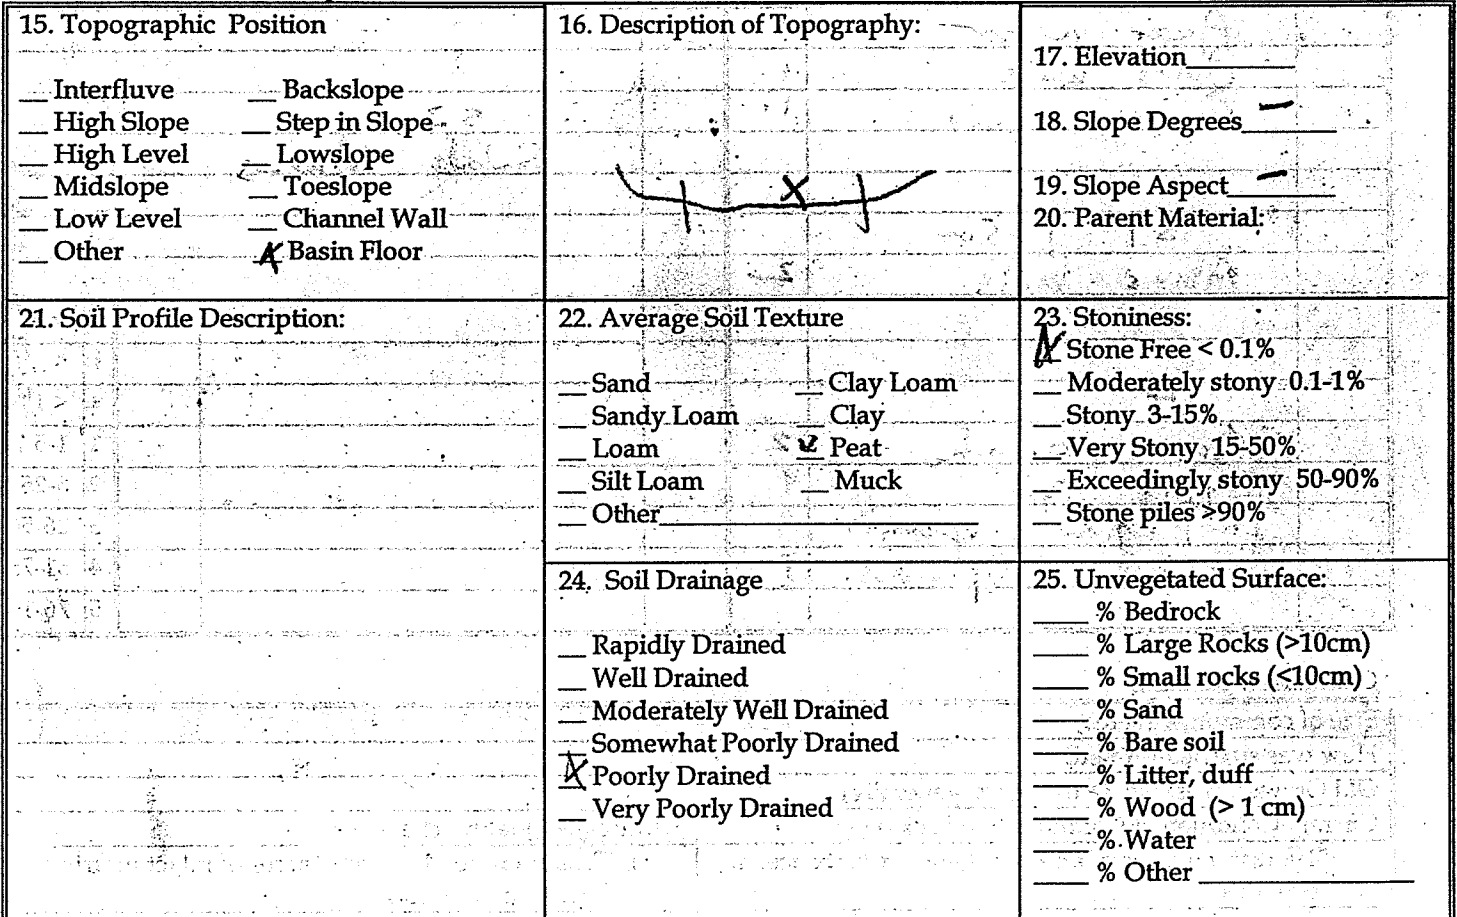 15. Topographic Position
__ Interfluve __ Backslope
__ High Slope __ Step in Slope
__ High Level __ Lowslope
__ Midslope __ Toeslope
__ Low Level __ Channel Wall
__ Other X Basin Floor
16. Description of Topography:
X
17. Elevation________
18. Slope Degrees — _______
19. Slope Aspect — ________
20. Parent Material:
21. Soil Profile Description:
22. Average Soil Texture
__ Sand __ Clay Loam
__ Sandy Loam __ Clay
__ Loam X Peat
__ Silt Loam __ Muck
__ Other________________________
23. Stoniness:
X Stone Free < 0.1%
__ Moderately stony 0.1-1%
__ Stony 3-15%
__ Very Stony 15-50%
__ Exceedingly stony 50-90%
__ Stone piles >90%
24. Soil Drainage
__ Rapidly Drained
__ Well Drained
__ Moderately Well Drained
__ Somewhat Poorly Drained
X Poorly Drained
__ Very Poorly Drained
25. Unvegetated Surface:
____ % Bedrock
____ % Large Rocks (>10cm)
____ % Small rocks (<10cm)
____ % Sand
____ % Bare soil
____ % Litter, duff
____ % Wood (> 1 cm)
____ % Water
____ % Other ________________